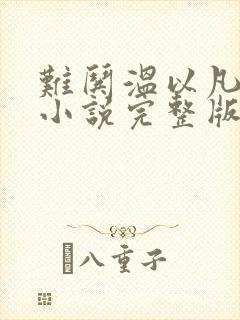 難鬨溫以凡
小說完整版
八重子